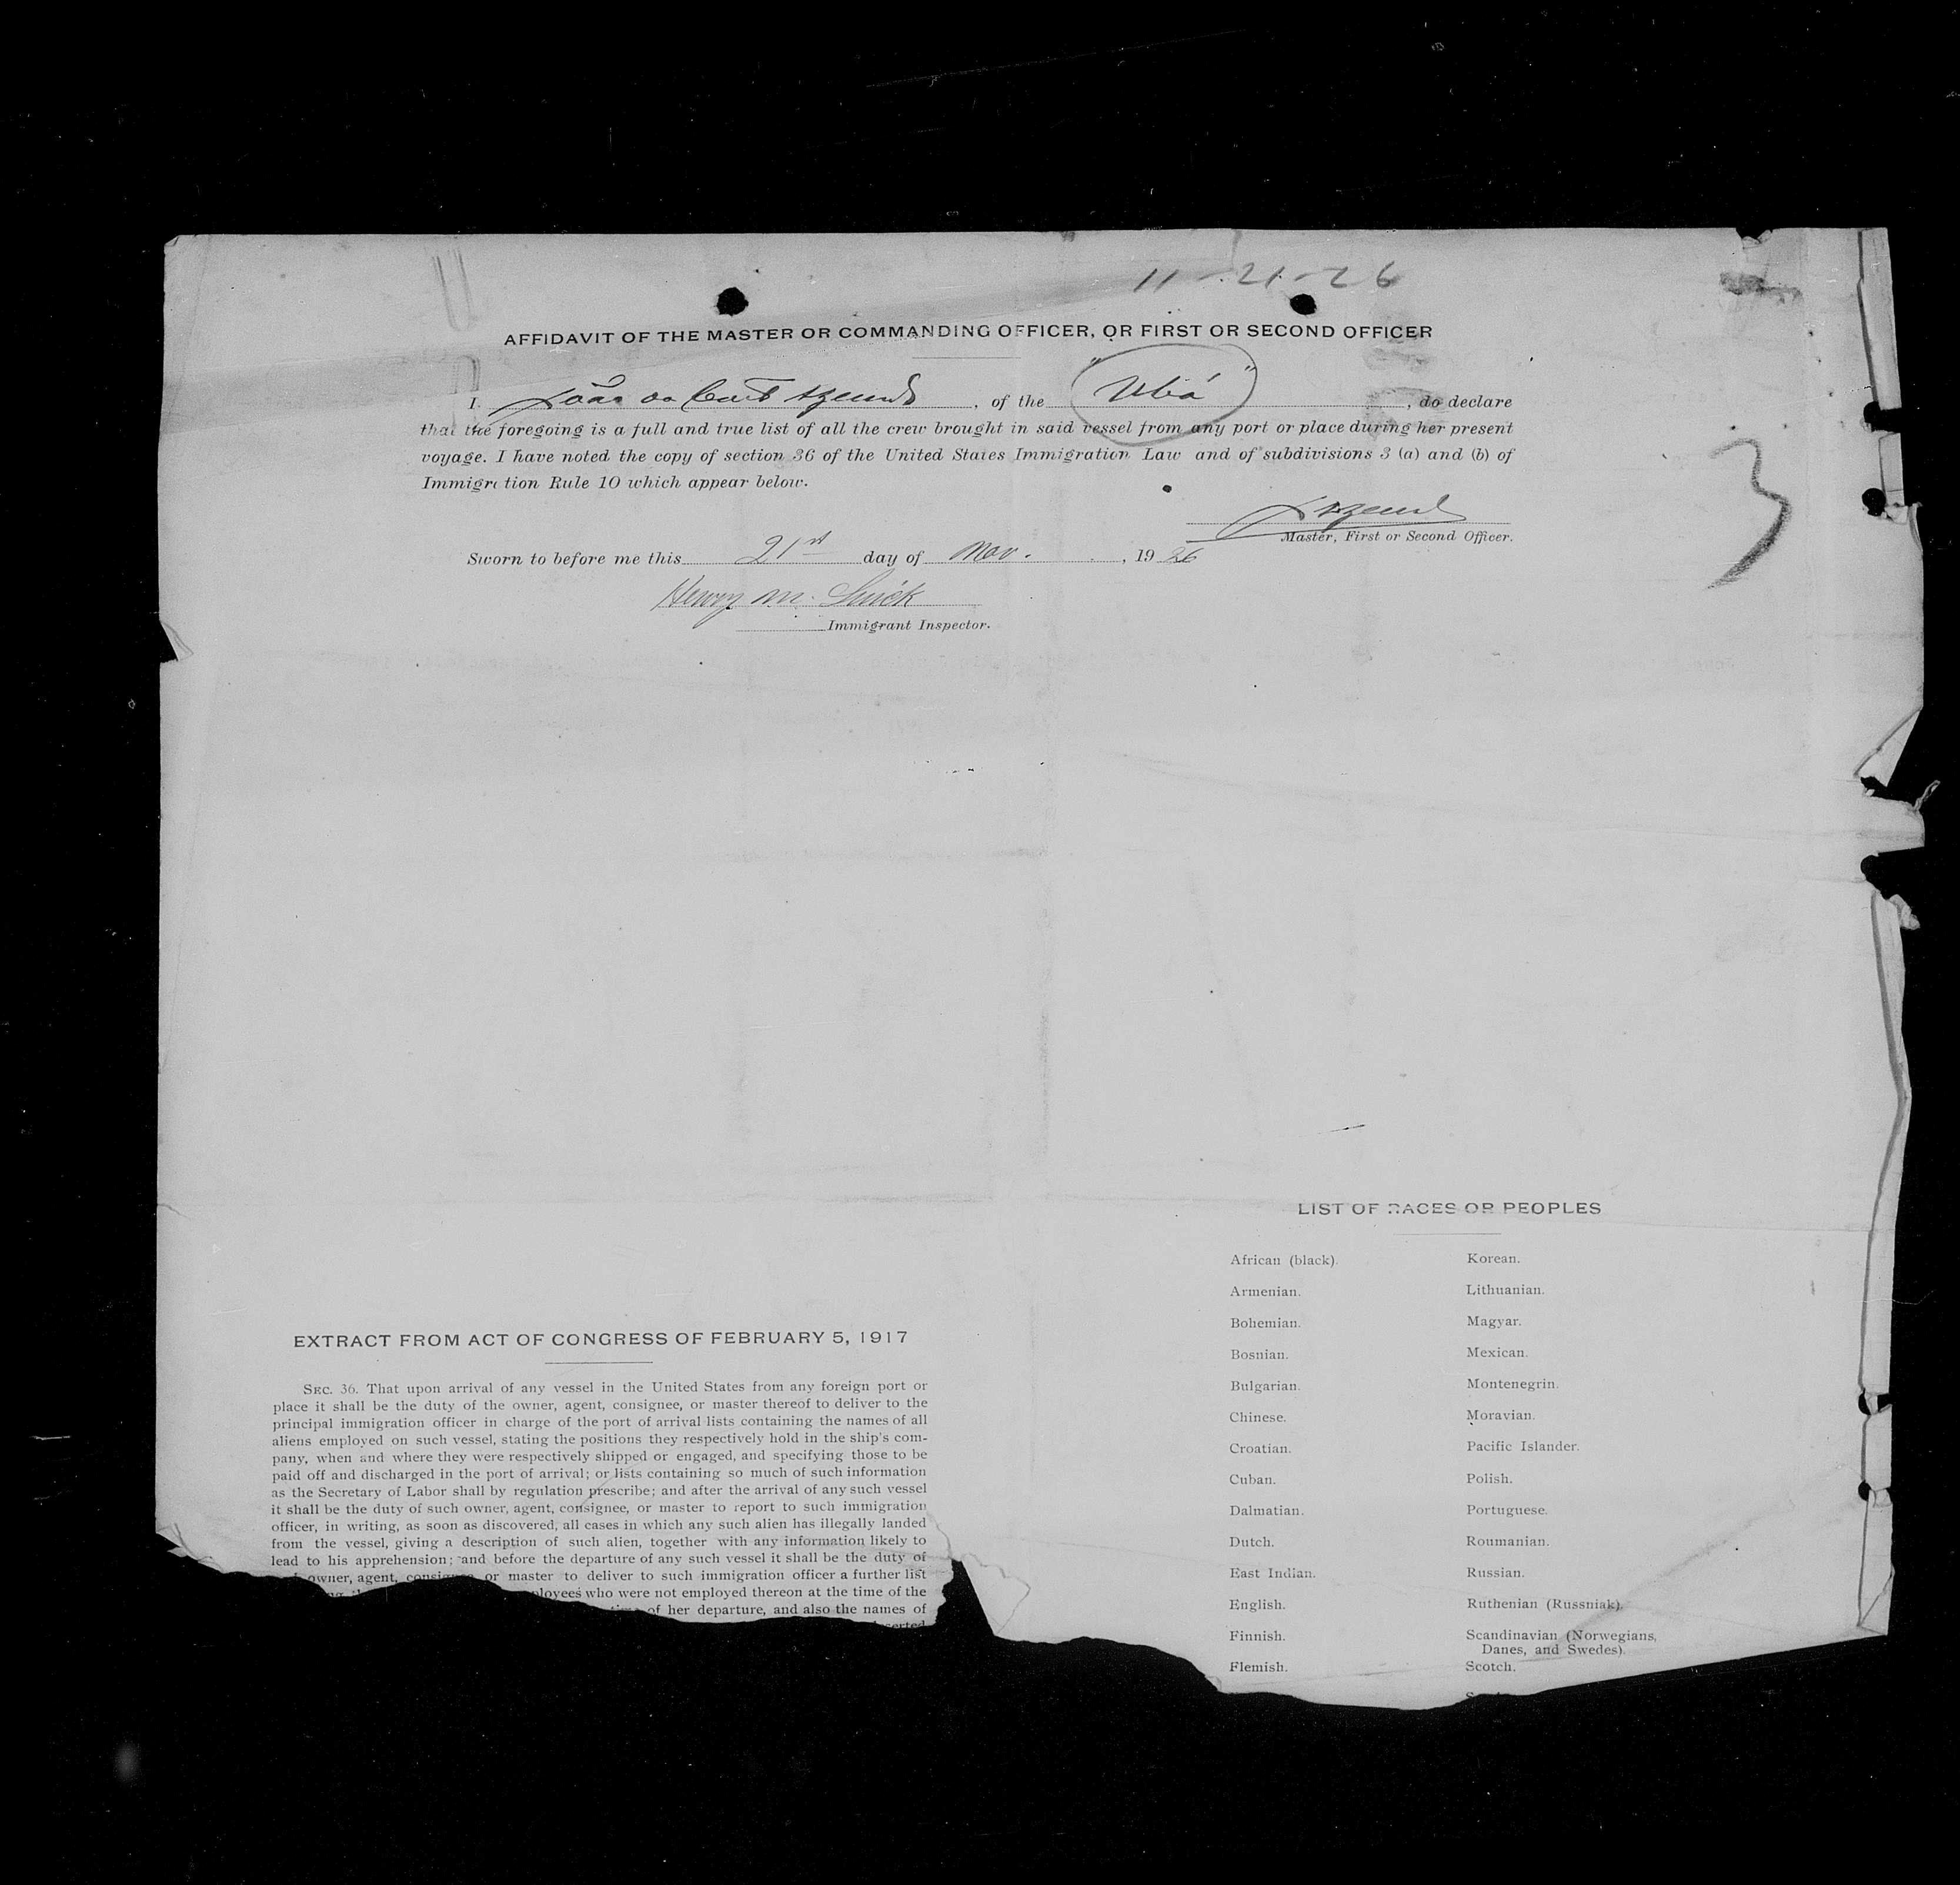 11-21-26
AFFIDAVIT OF THE MASTER OR COMMANDING OFFICER, OR FIRST OR SECOND OFFICER
I, João da , of the "Ubá", do declare
that the foregoing is a full and true list of all the crew brought in said vessel from any port or place during her present
voyage. I have noted the copy of section 36 of the United States Immigration Law and of subdivisions 3 (a) and (b) of
Immigration Rule 10 which appear below.
3
Master, First or Second Officer.
Sworn to before me this 21st day of Nov. , 1926
Henry M.
Immigrant Inspector.
EXTRACT FROM ACT OF CONGRESS OF FEBRUARY 5, 1917
SEC. 36. That upon arrival of any vessel in the United States from any foreign port or
place it shall be the duty of the owner, agent, consignee, or master thereof to deliver to the
principal immigration officer in charge of the port of arrival lists containing the names of all
aliens employed on such vessel, stating the positions they respectively hold in the ship's com-
pany, when and where they were respectively shipped or engaged, and specifying those to be
paid off and discharged in the port of arrival; or lists containing so much of such information
as the Secretary of Labor shall by regulation prescribe; and after the arrival of any such vessel
it shall be the duty of such owner, agent, consignee, or master to report to such immigration
officer, in writing, as soon as discovered, all cases in which any such alien has illegally landed
from the vessel, giving a description of such alien, together with any information likely to
lead to his apprehension; and before the departure of any such vessel it shall be the duty of
owner, agent, consignee or master to deliver to such immigration officer a further list
ployees who were not employed thereon at the time of the
of her departure, and also the names of
serted
LIST OF RACES OR PEOPLES
African (black).
Armenian.
Bohemian.
Bosnian.
Bulgarian.
Chinese.
Croatian.
Cuban.
Dalmatian.
Dutch.
East Indian.
English.
Finnish.
Flemish.
Korean.
Lithuanian.
Magyar.
Mexican.
Montenegrin.
Moravian.
Pacific Islander.
Polish.
Portuguese.
Roumanian.
Russian.
Ruthenian (Russniak).
Scandinavian (Norwegians,
Danes, and Swedes).
Scotch.